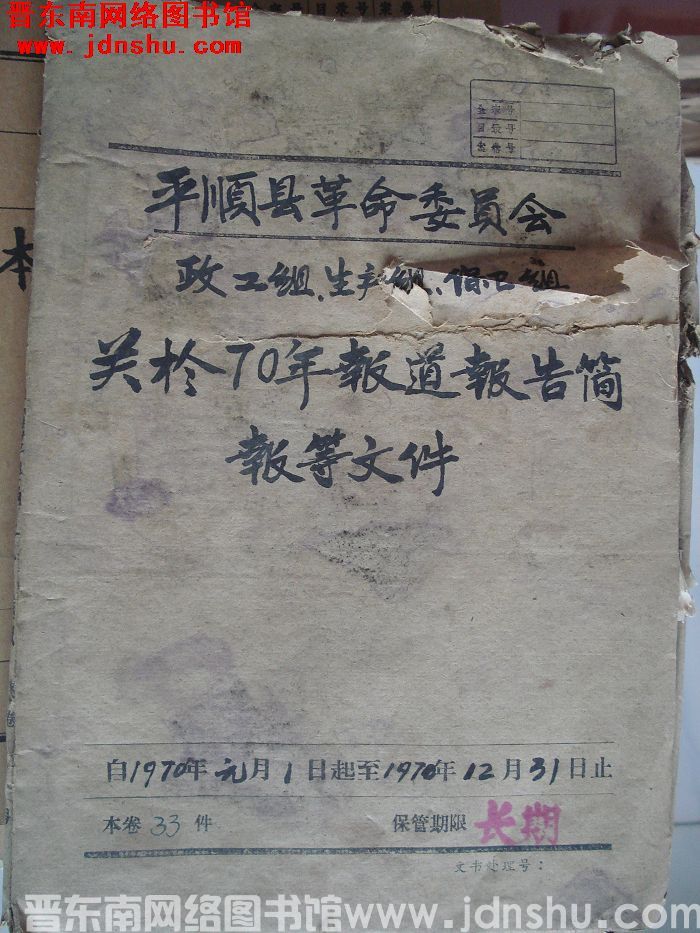 晋东南网络图书馆
www.jdnshu.com
目录号 案卷号
全宗号
目录号
案卷号
平順县革命委員会
政工组、生产组、保卫组
关於70年報道報告简
報等文件
自1970年元月1日起至1970年12月31日止
本卷33件 保管期限 长期
文书处理号：
本
晋东南网络图书馆www.jdnshu.com